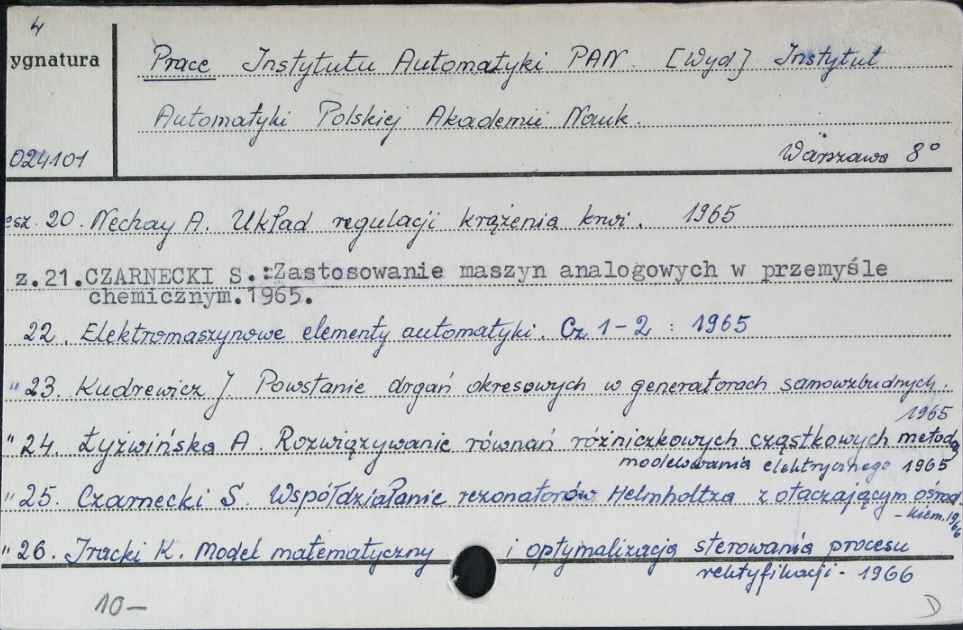 4
ygnatura
Prace Instytutu Automatyki PAN. [Wyd] Instytut
Automatyki Polskiej Akademii Nauk.
024101
Warszawa 8°
esz. 20. Nechay A. Układ regulacji krążenia krwi. 1965
z.21.CZARNECKI S.:Zastosowanie maszyn analogowych w przemyśle
chemicznym.1965.
22. Elektromaszynowe elementy automatyki. Cz 1-2 : 1965
" 23. Kudrewicz J. Powstanie drgań okresowych w generatorach samowzbudnych.
1965
" 24. Łyźwińska A. Rozwiązywanie równań różniczkowych cząstkowych metodą
modelowania elektrycznego 1965
" 25. Czarnecki S. Współdziałanie rezonatorów Helmholtza z otaczającym ośrod.
-kiem. 1966
" 26. Iracki K. Model matematyczny i optymalizacja sterowania procesu
rektyfikacji - 1966
10-
D